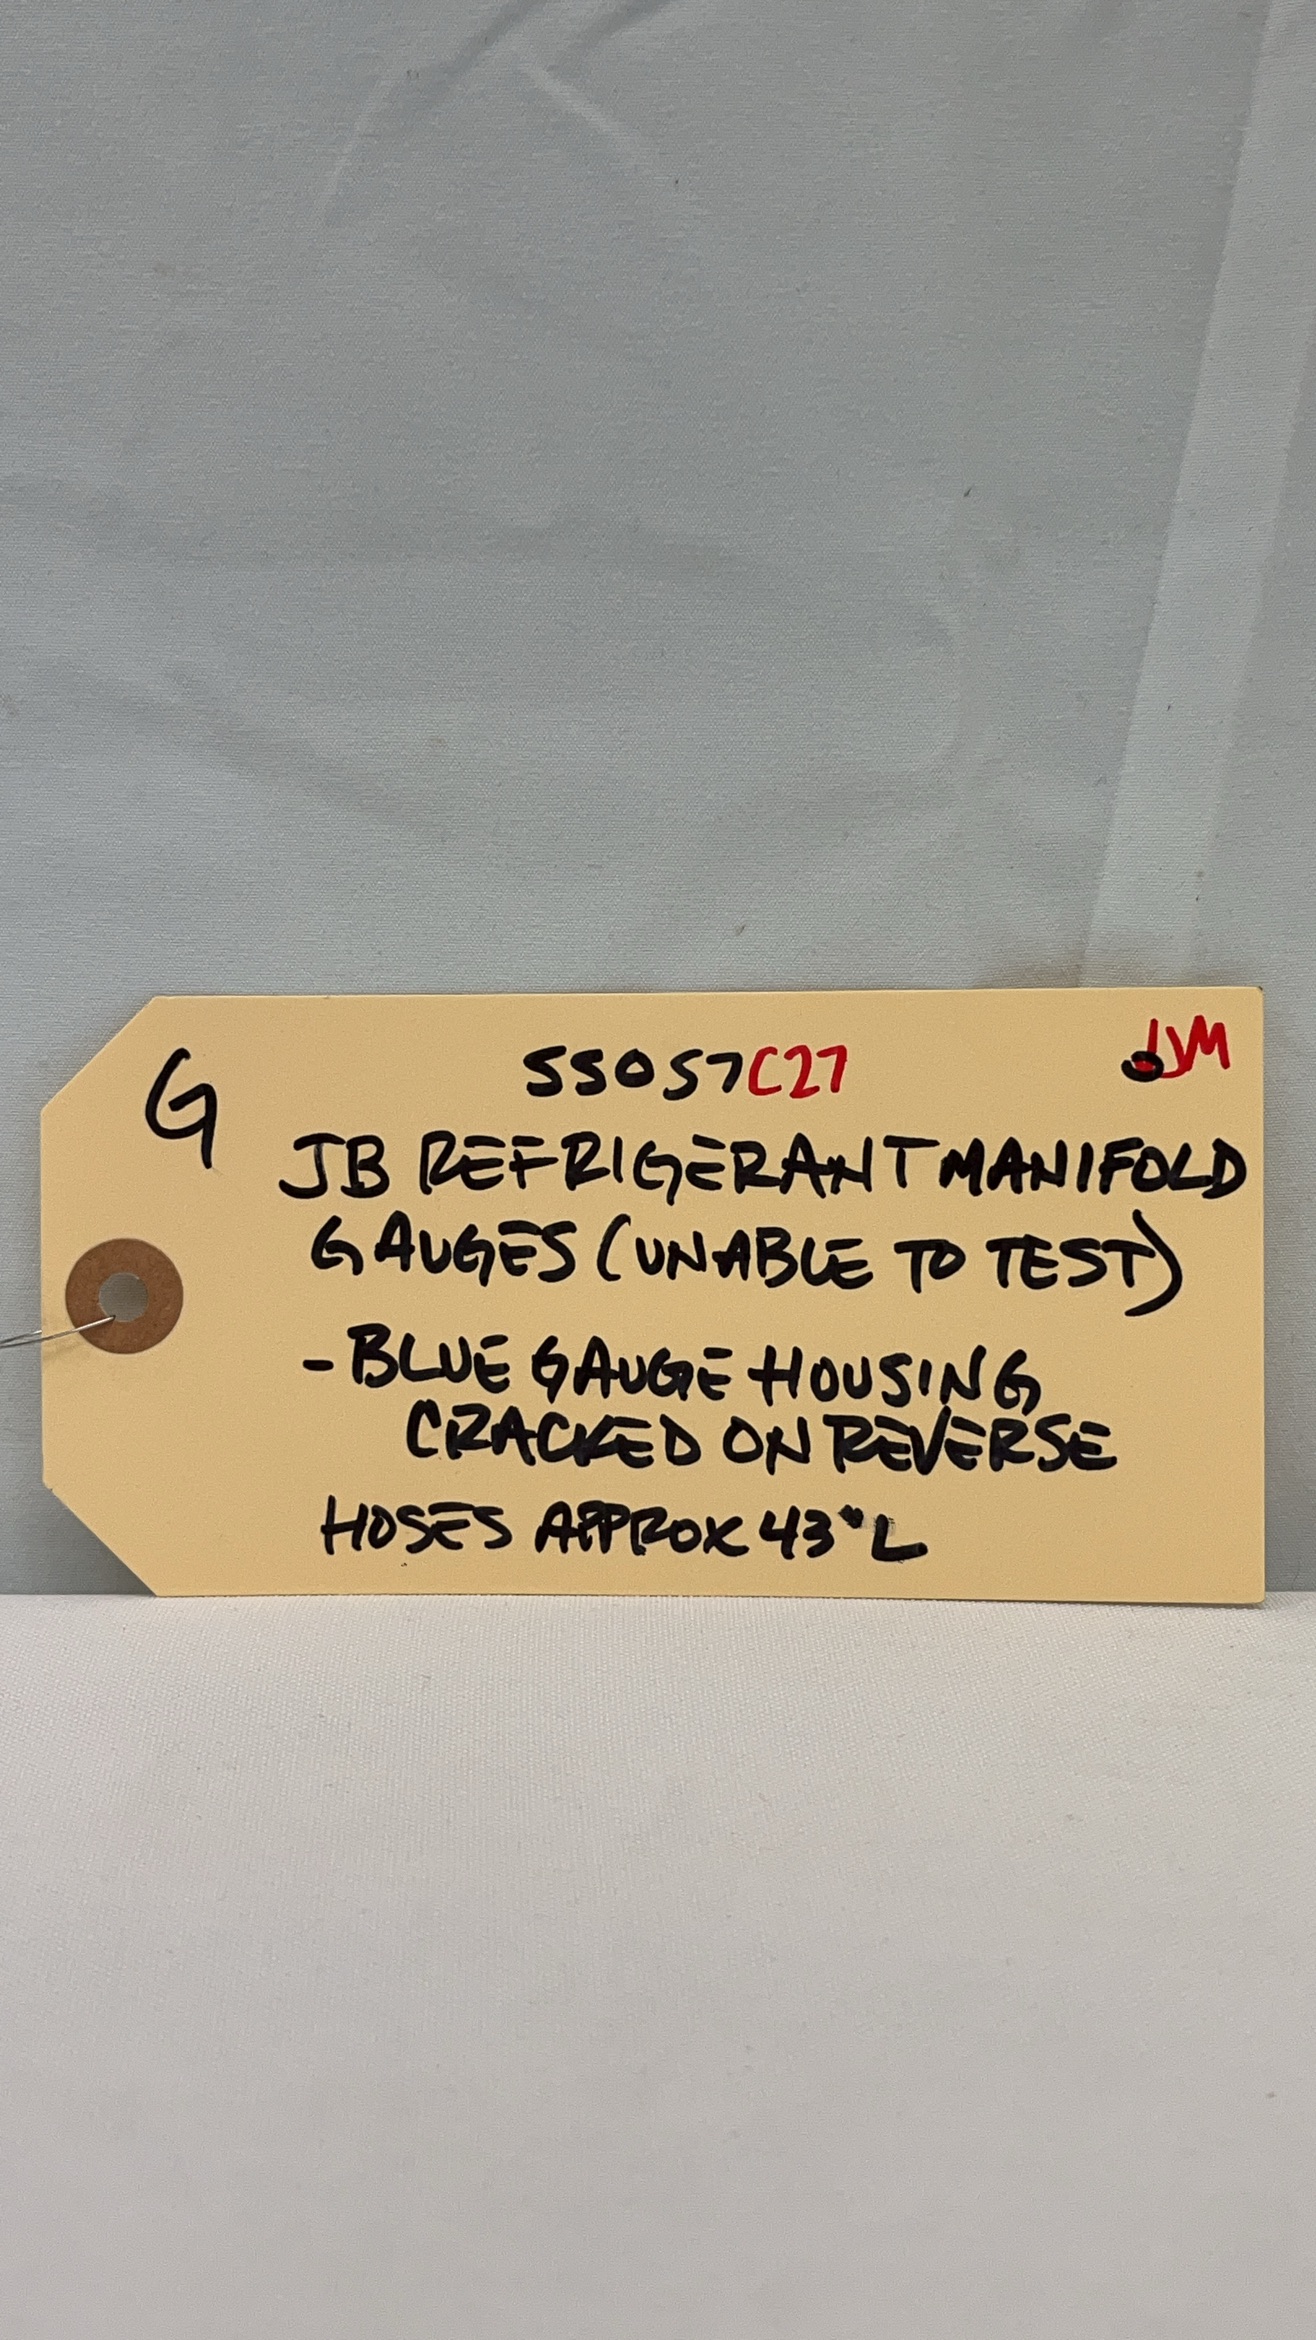 G
55057C27
JVM
JB REFRIGERANT MANIFOLD
GAUGES (UNABLE TO TEST)
- BLUE GAUGE HOUSING
CRACKED ON REVERSE
HOSES APPROX 43" L